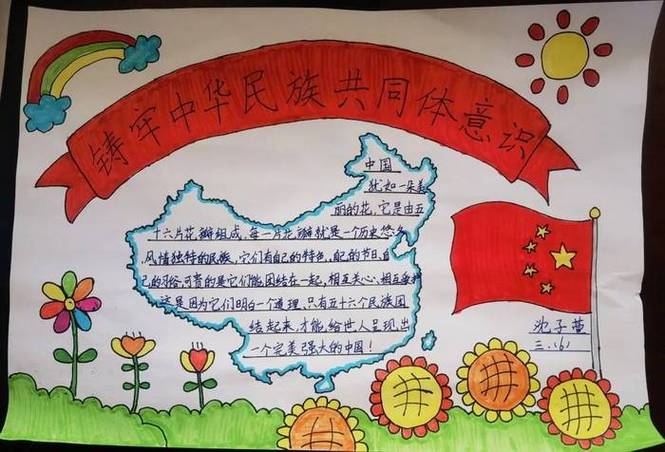 铸牢中华民族共同体意识
中国
犹如一朵美
丽的花，它是由五
十六片花瓣组成，每一片花瓣就是一个历史悠久，
风情独特的民族，它们有自己的特色，自己的节日，自
己的习俗，可喜的是它们能团结在一起，相互关心，相互
这是因为它们明白一个道理，只有五十六个民族团
结起来，才能给世人呈现出
一个完美强大的中国！
沈子萱
三.(6)